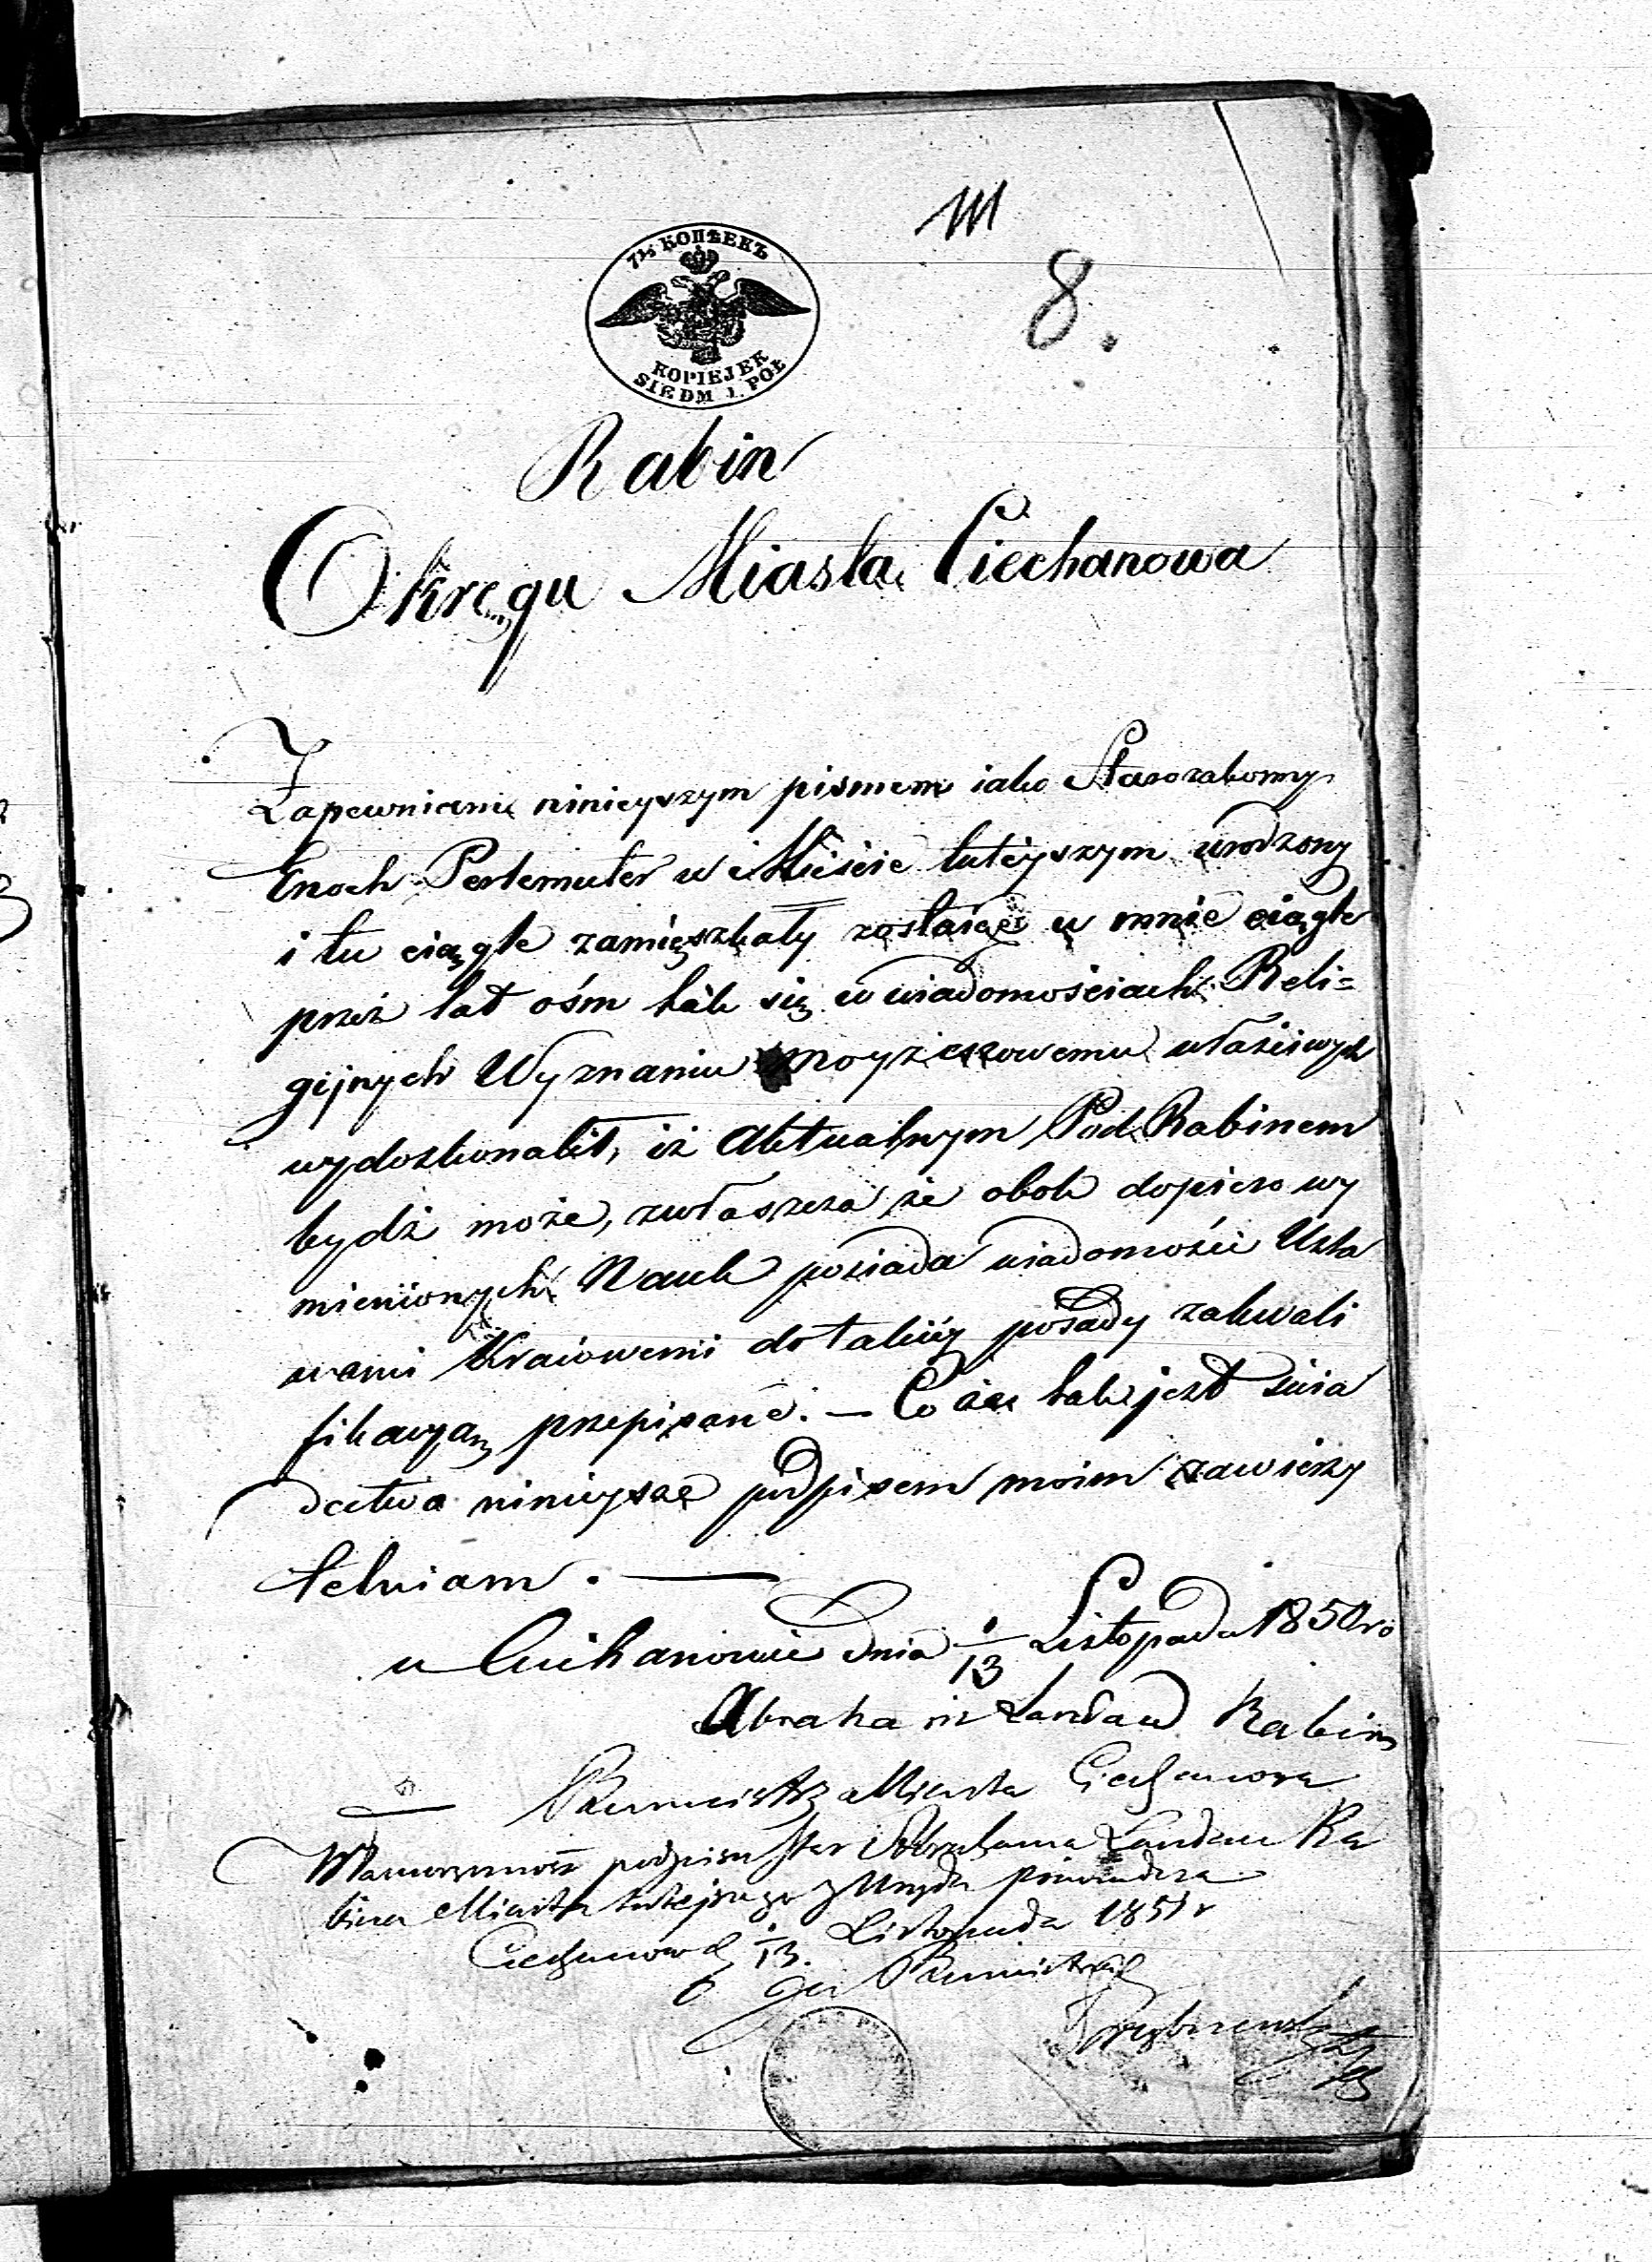 M
8.
7½ КОПѢЕКЪ
KOPIEJEK
SIEDM I. PÓŁ
Rabin
Okręgu Miasta Ciechanowa
Zapewniam ninieyszym pismem iako Starozakonny
Enoch Perlemuter w Mieście tuteyszym urodzony
i tu ciągle zamięszkały zostaiąc u mnie ciągle
przez lat ośm tak się w wiadomościach Reli=
gijnych Wyznaniu moyżeszowemu właściwych
wydoskonalił, iż aktualnym Pod Rabinem
bydź może, zwłaszcza że obok dopiero wy
mienionych Nauk posiada wiadomości Usta
wami Kraiowemi do takiéy posady zakwali
fikacyą przepisané. — Co że tak jest świa
dectwo ninieysze podpisem moim zawierzy
telniam. —
w Ciechanowie dnia 1/13 Listopada 1850 ro
Abraham Landau Rabin
Burmistrz Miasta Ciechanowa
Własnoręczność podpisu Star Abrahama Landau Ra
bina Miasta tutejszego z Urzędu poświadcza
Ciechanow d 1/13. Listopada 1851 r
Burmistrz